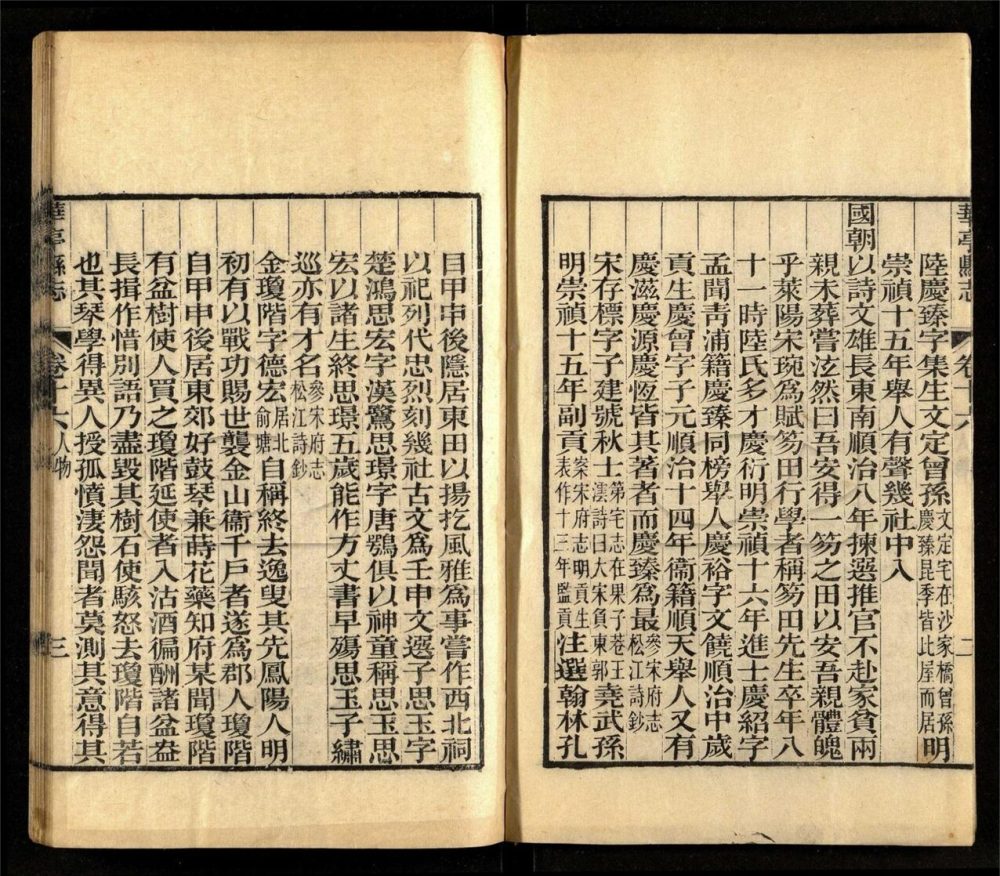 華亭縣志 卷十六 二
陸慶臻字集生文定曾孫文定宅在沙家橋曾孫慶臻昆季皆比屋而居明
崇禎十五年舉人有聲幾社中入
國朝以詩文雄長東南順治八年揀選推官不赴家貧兩
親未葬嘗泫然曰吾安得一笏之田以安吾親體魄
乎萊陽宋琬爲賦笏田行學者稱笏田先生卒年八
十一時陸氏多才慶衍明崇禎十六年進士慶紹字
孟聞青浦籍慶臻同榜舉人慶裕字文饒順治中歲
貢生慶曾字子元順治十四年衞籍順天舉人又有
慶滋慶源慶恆皆其著者而慶臻爲最參宋府志松江詩鈔
宋存標字子建號秋士第宅志在果子巷王澐詩曰大宋負東郭堯武孫
明崇禎十五年副貢案宋府志明貢生表作十三年監貢注選翰林孔
目甲申後隱居東田以揚扢風雅爲事嘗作西北祠
以祀列代忠烈刻幾社古文爲壬申文選子思玉字
楚鴻思宏字漢鷺思璟字唐鶚俱以神童稱思玉思
宏以諸生終思璟五歲能作方丈書早殤思玉子繡
巡亦有才名參宋府志松江詩鈔
金瓊階字德宏居北俞塘自稱終去逸叟其先鳳陽人明
初有以戰功賜世襲金山衞千戸者遂爲郡人瓊階
自甲申後居東郊好鼓琴兼蒔花藥知府某聞瓊階
有盆樹使人買之瓊階延使者入沽酒徧酬諸盆盎
長揖作惜別語乃盡毀其樹石使駭怒去瓊階自若
也其琴學得異人授孤憤淒怨聞者莫測其意得其
華亭縣志 卷十六 人物 三